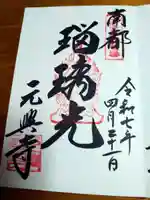 南都
令和七年
四月二十一日
瑠璃光
元興寺